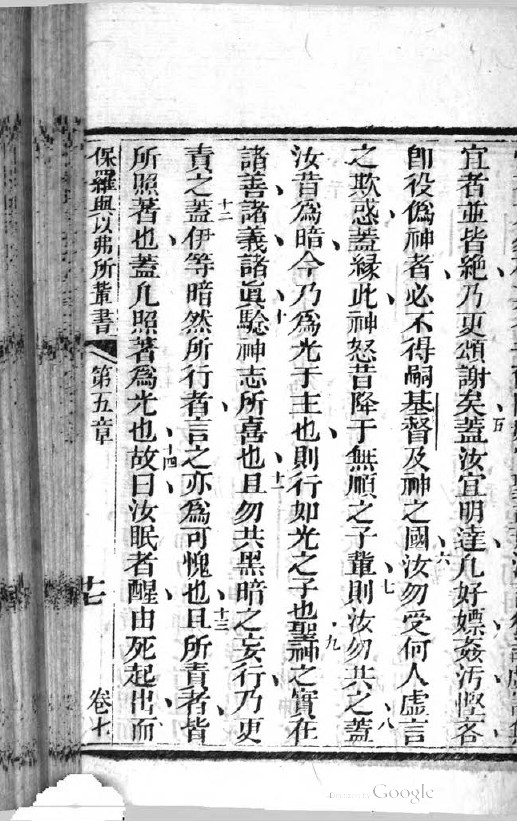 宜者並皆絶乃更頌謝矣蓋汝宜明達凡好嫖姦汚慳吝
五
卽役偽神者必不得嗣基督及神之國汝勿受何人虛言
六
之欺惑蓋緣此神怒昔降于無順之子輩則汝勿共之蓋
七 八
汝昔爲暗今乃爲光于主也則行如光之子也聖神之實在
九
諸善諸義諸眞驗神志所喜也且勿共黑暗之妄行乃更
十 十一
責之蓋伊等暗然所行者言之亦爲可愧也且所責者皆
十二 十三
所照著也蓋凡照著爲光也故曰汝眠者醒由死起出而
十四
保羅與以弗所輩書 第五章 十七 卷七
Digitized by Google